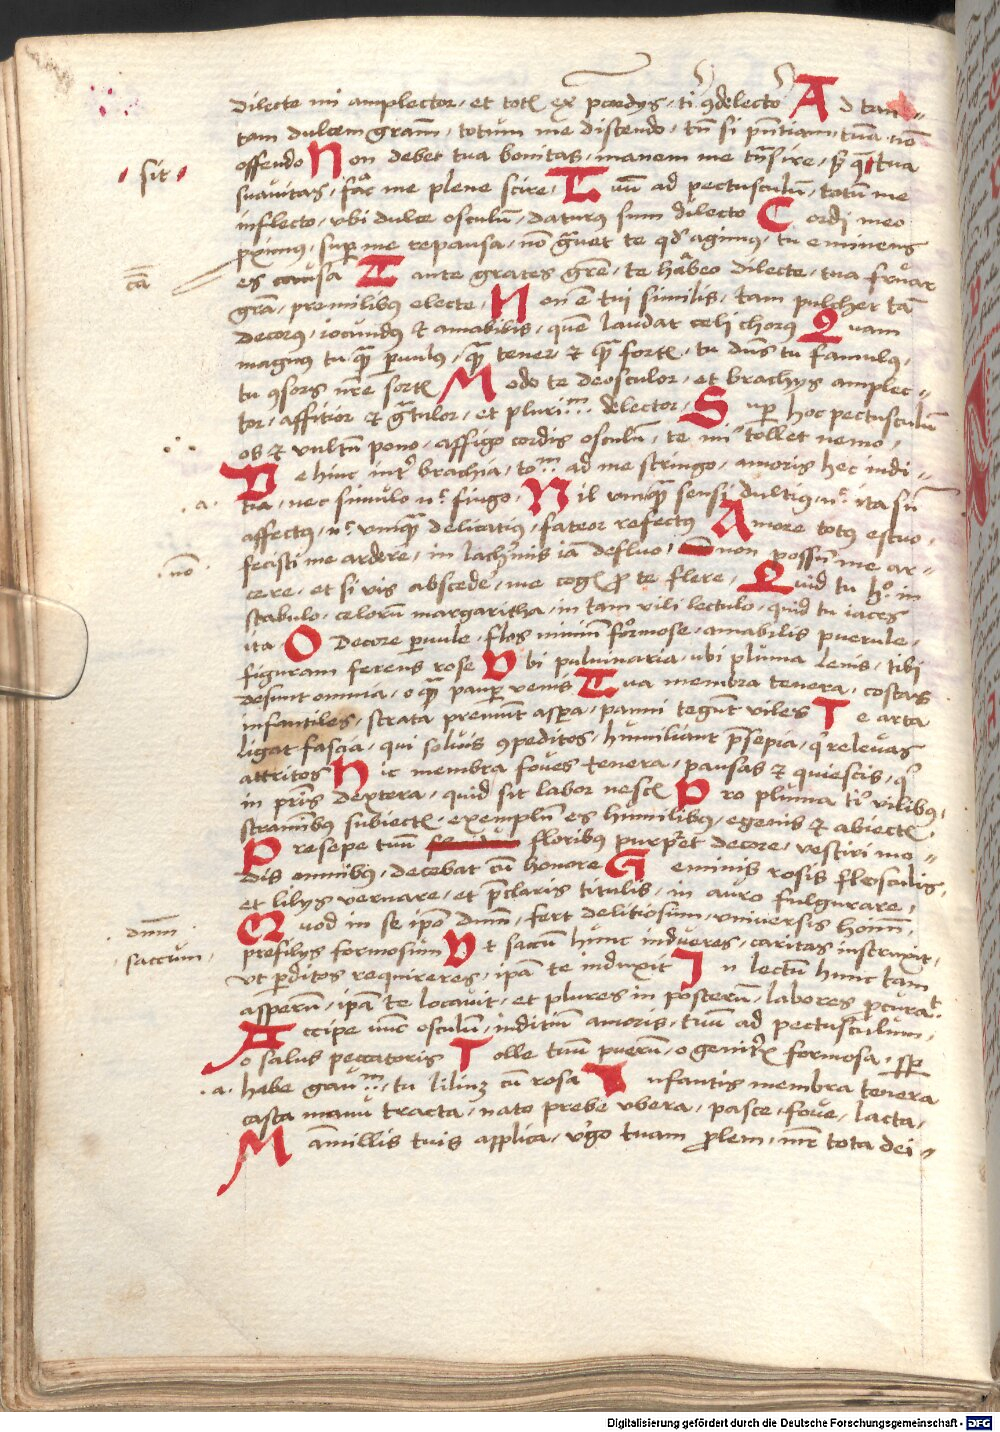 dilecte mi amplector, et totꝰ ex p̄cordys, ti ꝯdelector A d tan=
tam dulcem gram̄, totum me distendo, tn̄ si pn̄tiam, tua, no
offendo N on debet tua bonitas, manem me tn̄sire,
sit
suavitas, fac me plene scire, T uū ad pectusculū, totū me
inflecto, vbi dulce osculū, daturꝰ sum dilecto C ordi meo
pximus, super me repausa, nō grauet te qd agimus, tu eminens
cā
es causa T ante grates gre, te habeo dilecte, tua fruar
gra, pre milibus electe, N on ē tui similis, tam pulcher tā
decorus, iocundꝰ et amabilis, quē laudat celi chorus Q uam
magnus tu, qꝫ paruulus, qꝫ tener et qꝫ fortis, tu dn̄s tu famulꝰ,
tu ꝯsors nr̄e sortis M odo te deosculor, et brachys amplec=
tor, afficior et gratulor, et plurimum delector, S uper hoc pectusculū
os et vultū pono, affigo cordis osculū, te mi tollet nemo,
D e hinc intr brachia, to m ad me stringo, amoris hec indi=
a
tia, nec simulo nec fingo, N il vnqꝫ sensi dultius, nec ita sū
affectus, nec vnqꝫ delicatius, fateor refectus A more totus estuo,
fecisti me ardere, in lachrimis iā defluo, non possū me ar=
no
cere, et si vis abscede, me cogis pro te flere, Q uid tu hoc in
stabulo, celorū margaritha, in tam vili lectulo, quid tu iaces
ita O Decore paruule, flos nimiū formose, amabilis puerule,
figuram ferens rose V bi puluinaria, vbi pluma lenis, tibi
desunt omnia, o qꝫ pauper venis T ua membra tenera, costas
infantiles, strata premunt aspera, panni tegunt viles T e arta
ligat fascia, qui soluis ꝯpeditos, humiliant presepia, qͥ releuas
attritos H ic membra foues tenera, pausas et quiescis, qͥ
in pris dextera, quid sit labor nescis P ro pluma tͥ vilibus,
straminibus subiectꝰ, exemplū es humilibus, egenis et abiectis
P resepe tuū floribus purpūret decore, vestiri mo=
dis omnibus, decebat cū honore G eminis rosis flosculis,
et lilys vernare, et preclaris titulis, in auro fulgurare,
Q uod in se ipo dnm̄, fert delitiosum, vniversis hoim̄,
dnm̄
prefilys formosum V t saccū hunc indueres, caritas instruxit,
saccum
vt perditos requireres, ipā te induxit I n lectū hunc tam
asperū, ipā te locauit, et plures in posterū, labores procurat
A ccipe nunc osculū, inditiū amoris, tuū ad pectusculum,
o salus peccatoris T olle tuū puerū, o genitrix formosa, super
a
habe gaum, tu liliuꝫ cū rosa I nfantis membra tenera
casta manu tracta, nato prebe vbera, pasce, foue, lacta,
M amillis tuis applica, virgo tuam prolem, mr̄ tota dei=
Digitalisierung gefördert durch die Deutsche Forschungsgemeinschaft - DFG